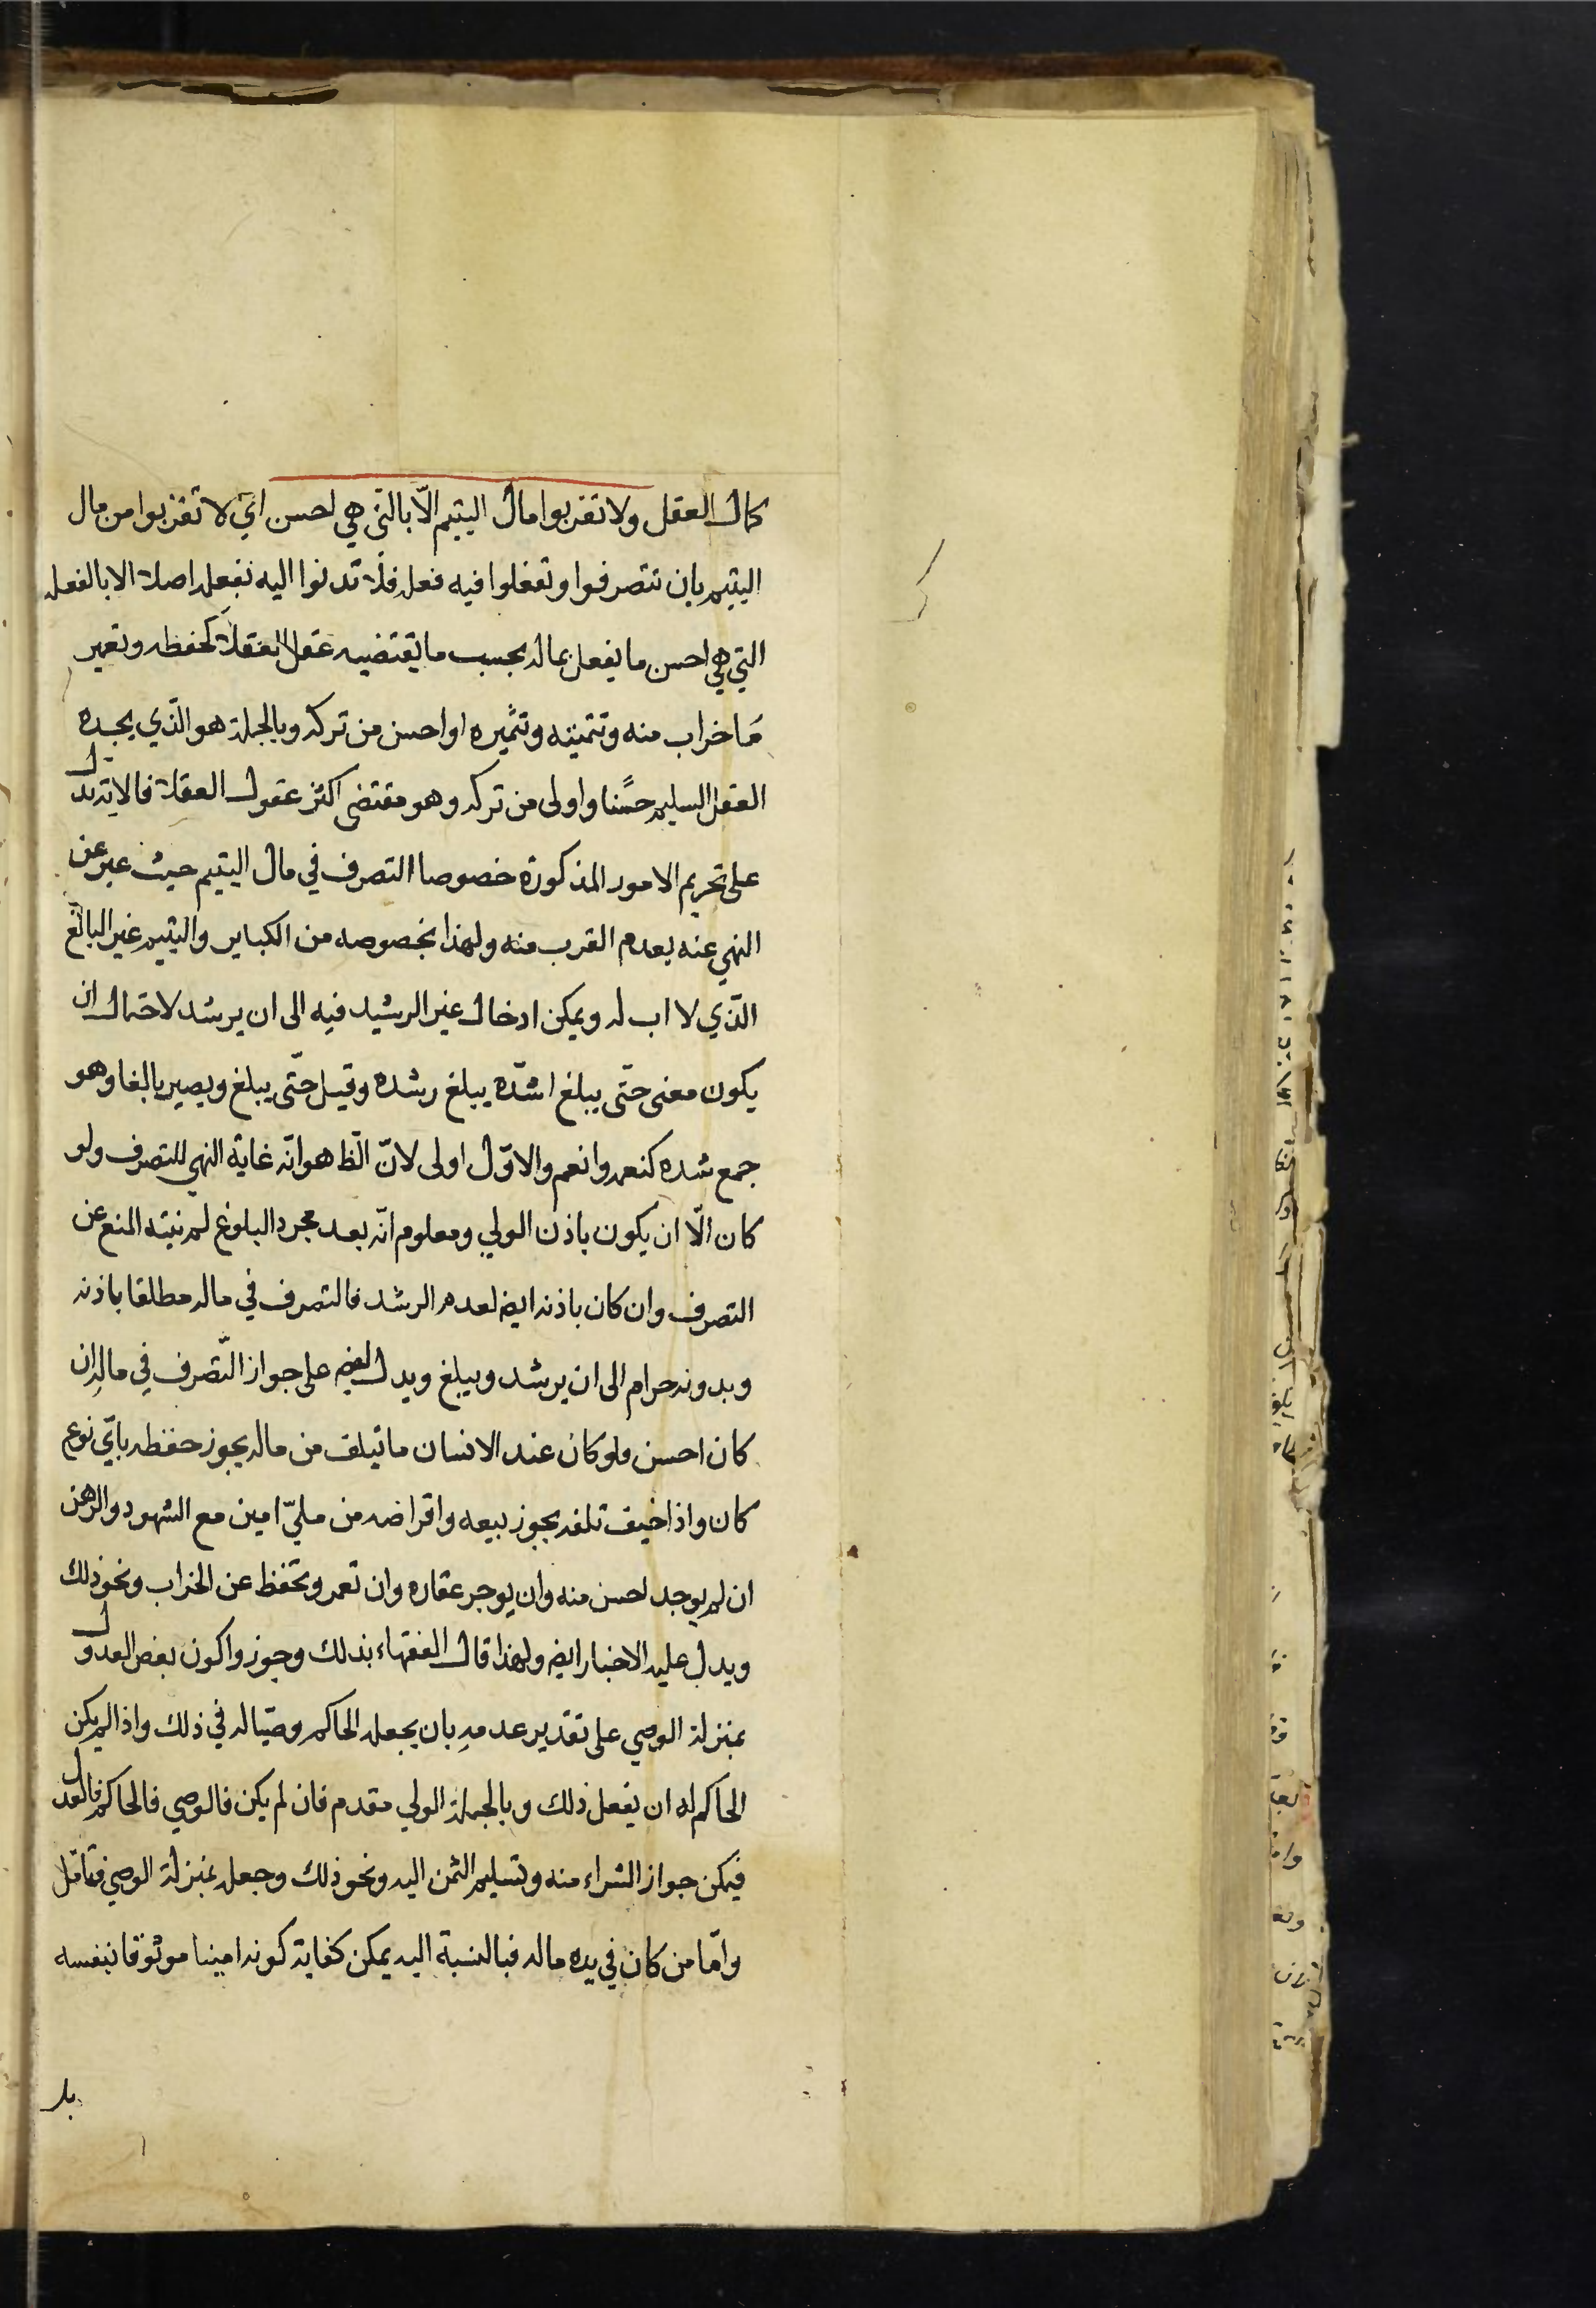 كمال العقل ولا تقربوا مال اليتيم الّا بالتي هي احسن اي لا تقربوا من مال
اليتيم بان تتصرفوا وتفعلوا فيه فعلا فلا تدنوا اليه بفعل اصلا الا بالفعلة
التي هي احسن ما يفعل بماله بحسب ما يقتضيه عقل العقلاء كحفظه وتعمير
ما خراب منه وتنميته وتثميره او احسن من تركه وبالجملة هو الّذي يجده
العقل السليم حسنا واولى من تركه وهو مقتضى اكثر عقول العقلاء فالاية تدل
على تحريم الامور المذكورة خصوصا التصرف في مال اليتيم حيث عبر عن
النهي عنه بعدم القرب منه ولهذا بخصوصه من الكباير واليتيم غير البالغ
الّذي لا اب له ويمكن ادخال غير الرشيد فيه الى ان يرشد لاحتمال ان
يكون معنى حتّى يبلغ اشدّه يبلغ رشده وقيل حتّى يبلغ ويصير بالغا وهو
جمع شده كنعمه وانعم والاوّل اولى لانّ الظ هو انّه غاية النهي للتصرف ولو
كان الّا ان يكون باذن الولي ومعلوم انّه بعد مجرد البلوغ لم ينته المنع عن
التصرف وان كان باذنه ايضه لعدم الرشد فالتصرف في ماله مطلقا باذنه
وبدونه حرام الى ان يرشد ويبلغ ويدل ايضه على جواز التّصرف في ماله ان
كان احسن ولو كان عند الانسان ما تيلف من ماله يجوز حفظه بايّ نوع
كان واذا خيف تلفه يجوز بيعه واقراضه من مليّ امين مع الشهود والرهن
ان لم يوجد احسن منه وان يوجر عقاره وان تعمر وتحفظ عن الخراب ونحو ذلك
ويدل عليه الاخبار ايضه ولهذا قال الفقهاء بذلك وجوزوا كون بعض العدول
بمنزلة الوصي على تقدير عدمه بان يجعله الحاكم وصيّا له في ذلك واذا لم يكن
الحاكم له ان يفعل ذلك وبالجملة الولي مقدم فان لم يكن فالوصي فالحاكم فالعدل
فيمكن جواز الشراء منه وتسليم الثمن اليه ونحو ذلك وجعله بمنزلة الوصي فتامّل
وامّا من كان في يده ماله فبالنسبة اليه يمكن كفاية كونه امينا موثوقا بنفسه
بل